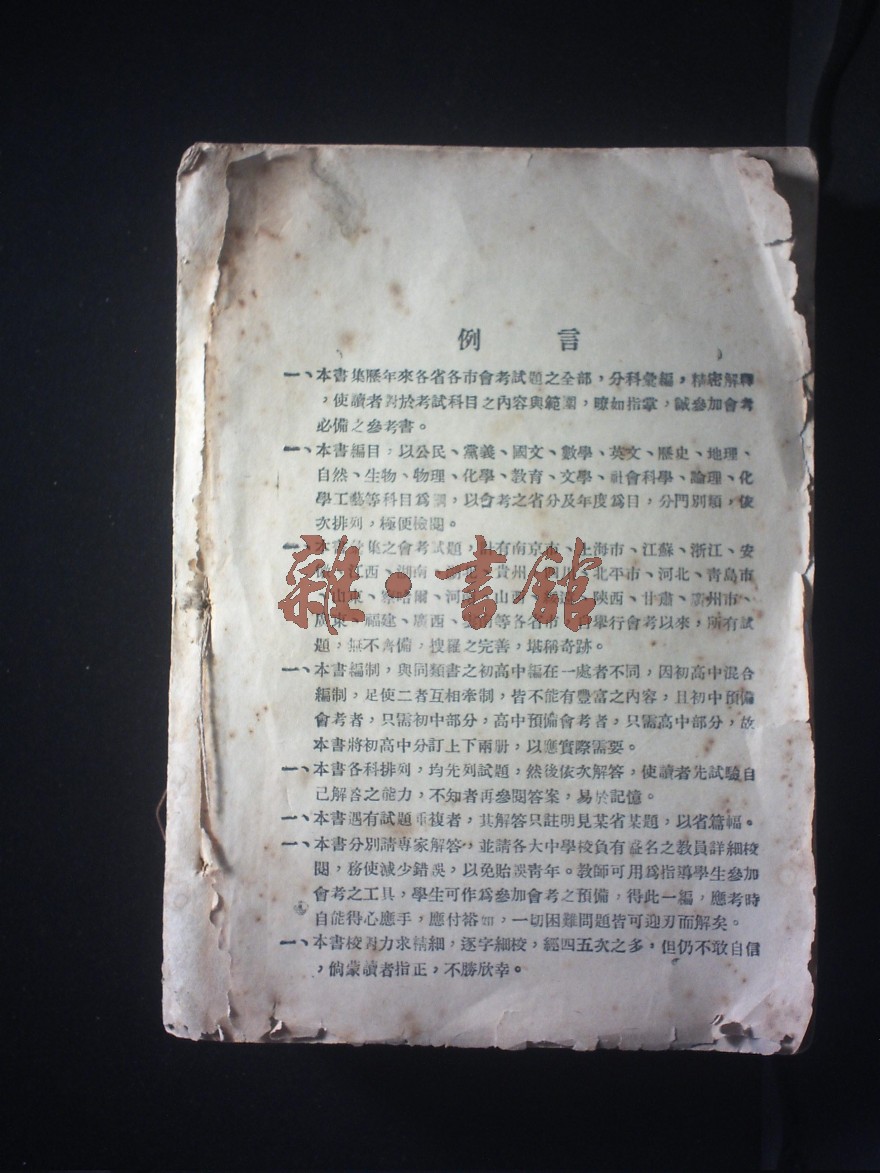 例言
一、本書集歷年來各省各市會考試題之全部，分科彙編，精密解釋
，使讀者對於考試科目之內容與範圍，瞭如指掌，誠參加會考
必備之參考書。
一、本書編目，以公民、黨義、國文、數學、英文、歷史、地理、
自然、生物、物理、化學、教育、文學、社會科學、論理、化
學工藝等科目為綱，以會考之省分及年度為目，分門別類，依
次排列，極便檢閱。
一、本書 集之會考試題，計有南京市、上海市、江蘇、浙江、安
、江西、湖南、 、貴州、四川、北平市、河北、青島市
、山東、察哈爾、河 、山西、 、陝西、甘肅、廣州市、
廣東、福建、廣西、 等各省市，自舉行會考以來，所有試
題，無不齊備，搜羅之完善，堪稱奇跡。
一、本書編制，與同類書之初高中編在一處者不同，因初高中混合
編制，足使二者互相牽制，皆不能有豐富之內容，且初中預備
會考者，只需初中部分，高中預備會考者，只需高中部分，故
本書將初高中分訂上下兩册，以應實際需要。
一、本書各科排列，均先列試題，然後依次解答，使讀者先試驗自
己解答之能力，不知者再參閱答案，易於記憶。
一、本書遇有試題重複者，其解答只註明見某省某題，以省篇幅。
一、本書分別請專家解答，並請各大中學校負有盛名之教員詳細校
閱，務使減少錯誤，以免貽誤青年。教師可用為指導學生參加
會考之工具，學生可作為參加會考之預備，得此一編，應考時
自能得心應手，應付裕如，一切困難問題皆可迎刃而解矣。
一、本書校對力求精細，逐字細校，經四五次之多，但仍不敢自信
，倘蒙讀者指正，不勝欣幸。
雜·書館